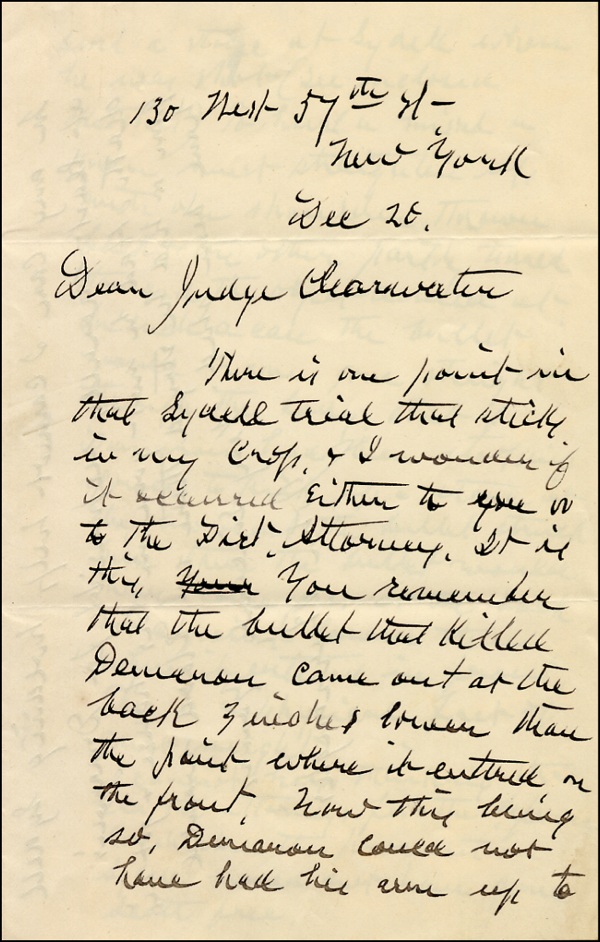 130 West 57th St.
New York
Dec 20.
Dear Judge Clearwater
There is one point in
that Lydell trial that sticks
in my Crop, & I wonder if
it occurred Either to you or
to the Dist. Attorney. It is
this, You remember
that the bullet that Killed
Demaron came out at the
back 7 inches lower than
the point where it entered, on
the front, Now this being
so, Demaron could not
have had his arm up to